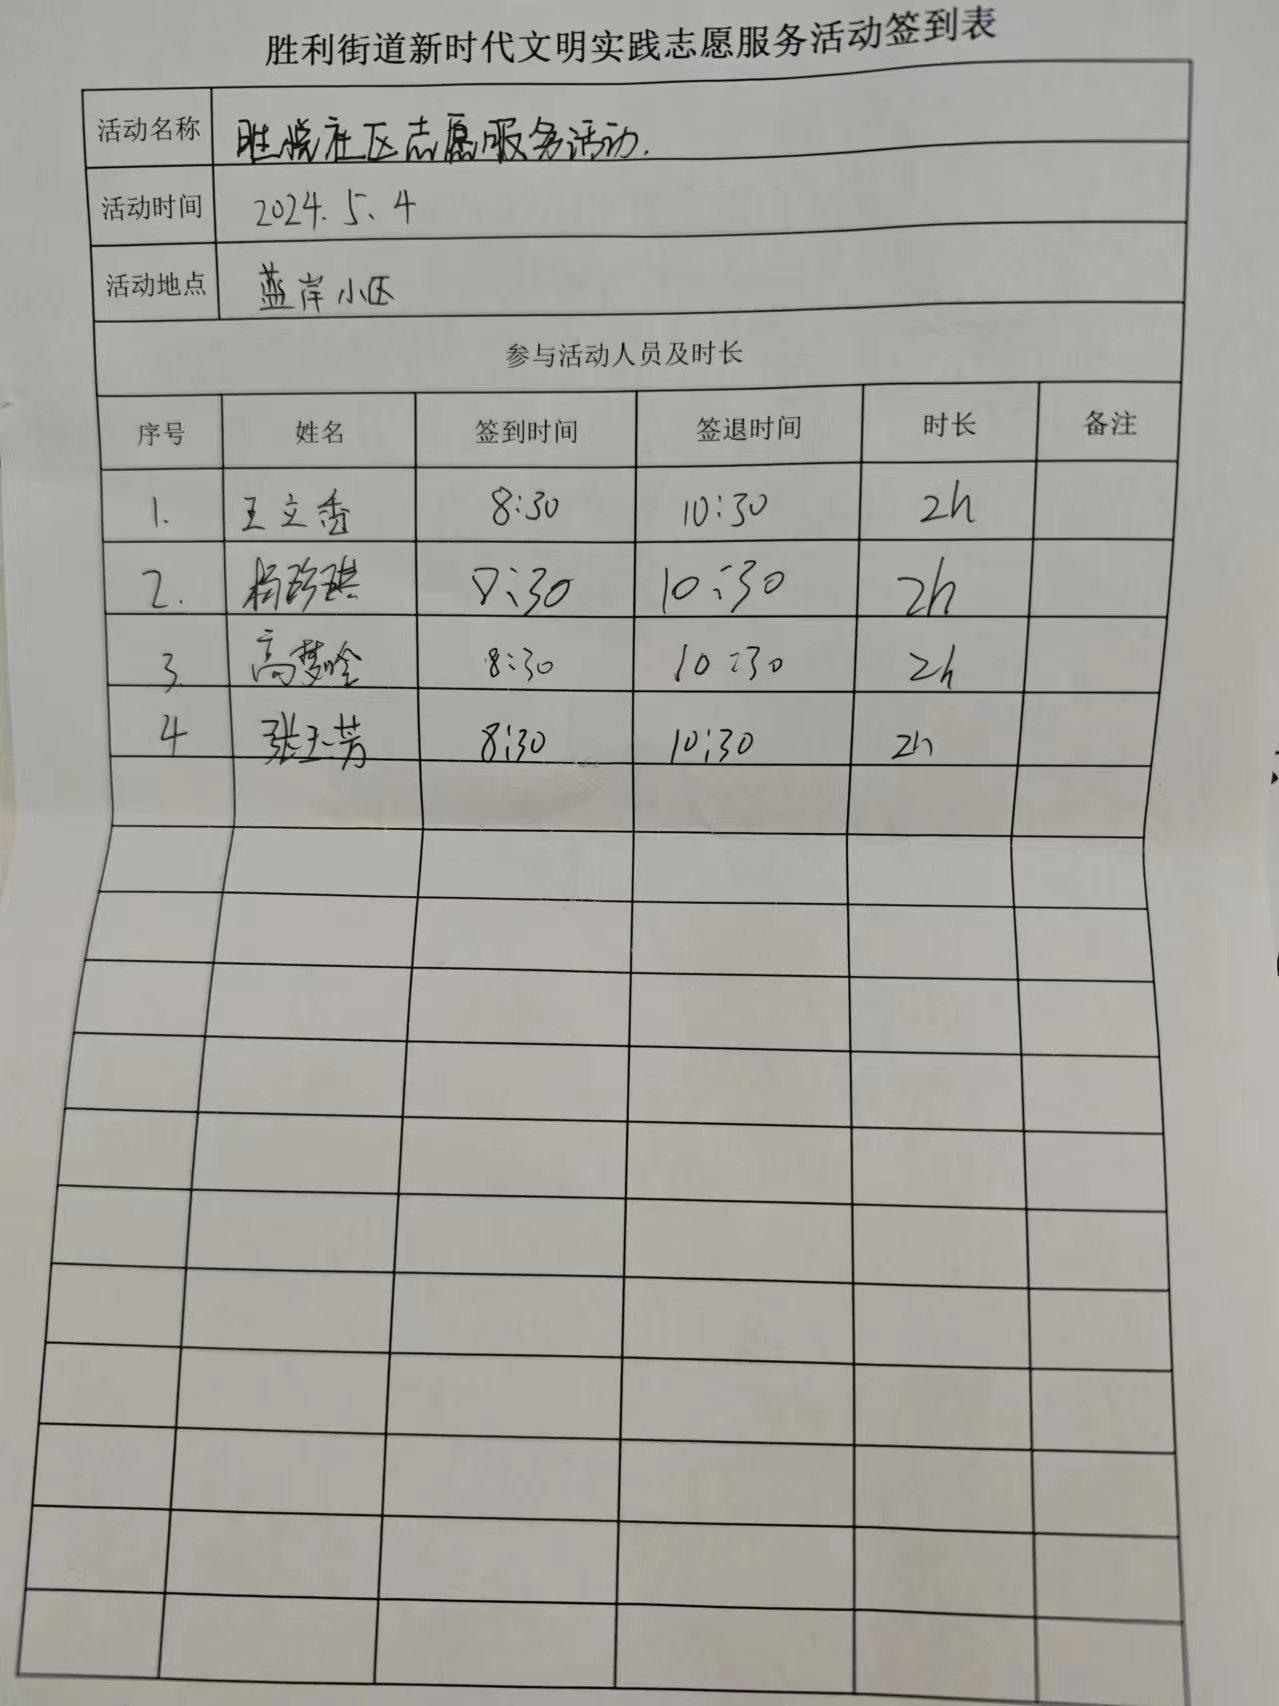 胜利街道新时代文明实践志愿服务活动签到表
活动名称 胜悦社区志愿服务活动.
活动时间 2024.5.4
活动地点 蓝岸小区
参与活动人员及时长
序号 姓名 签到时间 签退时间 时长 备注
1. 王立香 8:30 10:30 2h
2. 杨珍琪 8:30 10:30 2h
3. 高梦 8:30 10:30 2h
4 张玉芳 8:30 10:30 2h